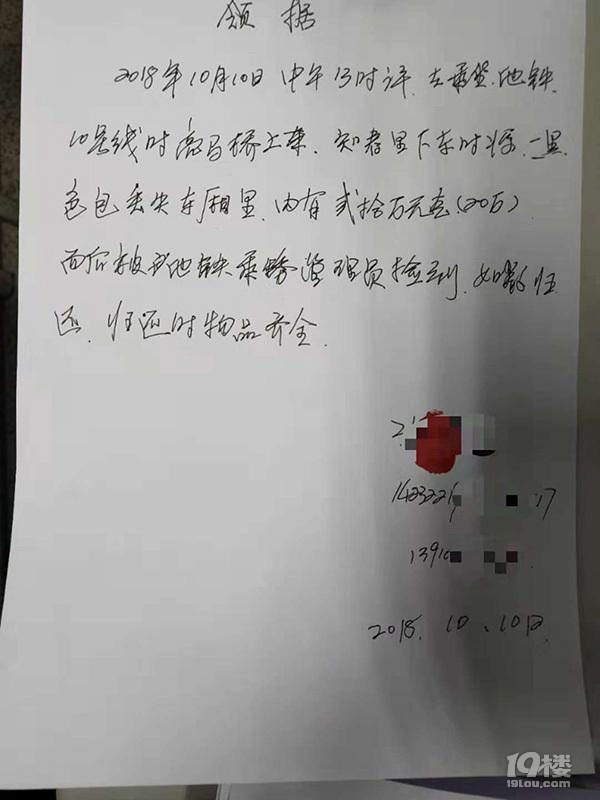 领 据
2018年10月10日 中午13时许, 去乘坐地铁
10号线时 高马桥上车, 知春里下车时将 一黑
色包丢失车厢里, 内有 贰拾万元(20万)
而后被 地铁乘务管理员捡到, 如数归
还, 归还时物品齐全.
1423221 17
1391
2018. 10、10日
19楼
19lou.com